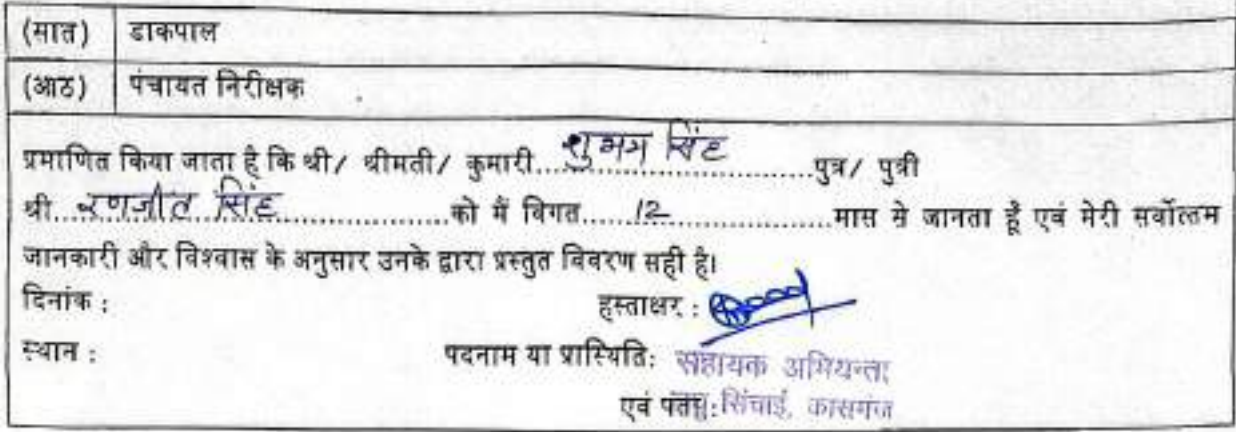 (सात) डाकपाल
(आठ) पंचायत निरीक्षक
प्रमाणित किया जाता है कि श्री/ श्रीमती/ कुमारी.....शुभम सिंह.....पुत्र/ पुत्री
श्री...रणजीत सिंह.....को मैं विगत.....12.....मास से जानता हूँ एवं मेरी सर्वोत्तम
जानकारी और विश्वास के अनुसार उनके द्वारा प्रस्तुत विवरण सही है।
दिनांक :
हस्ताक्षर :
स्थान :
पदनाम या प्रास्थिति: सहायक अभियन्ता
एवं सिंचाई, कासगंज